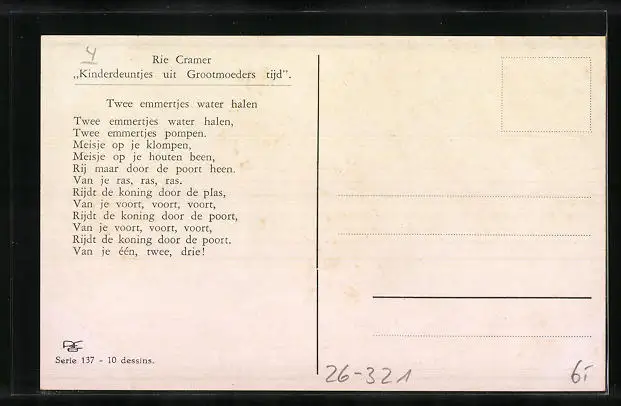 4
Rie Cramer
„Kinderdeuntjes uit Grootmoeders tijd".
Twee emmertjes water halen
Twee emmertjes water halen,
Twee emmertjes pompen.
Meisje op je klompen,
Meisje op je houten been,
Rij maar door de poort heen.
Van je ras, ras, ras.
Rijdt de koning door de plas,
Van je voort, voort, voort,
Rijdt de koning door de poort,
Van je voort, voort, voort,
Rijdt de koning door de poort.
Van je één, twee, drie!
Serie 137 - 10 dessins.
26-321